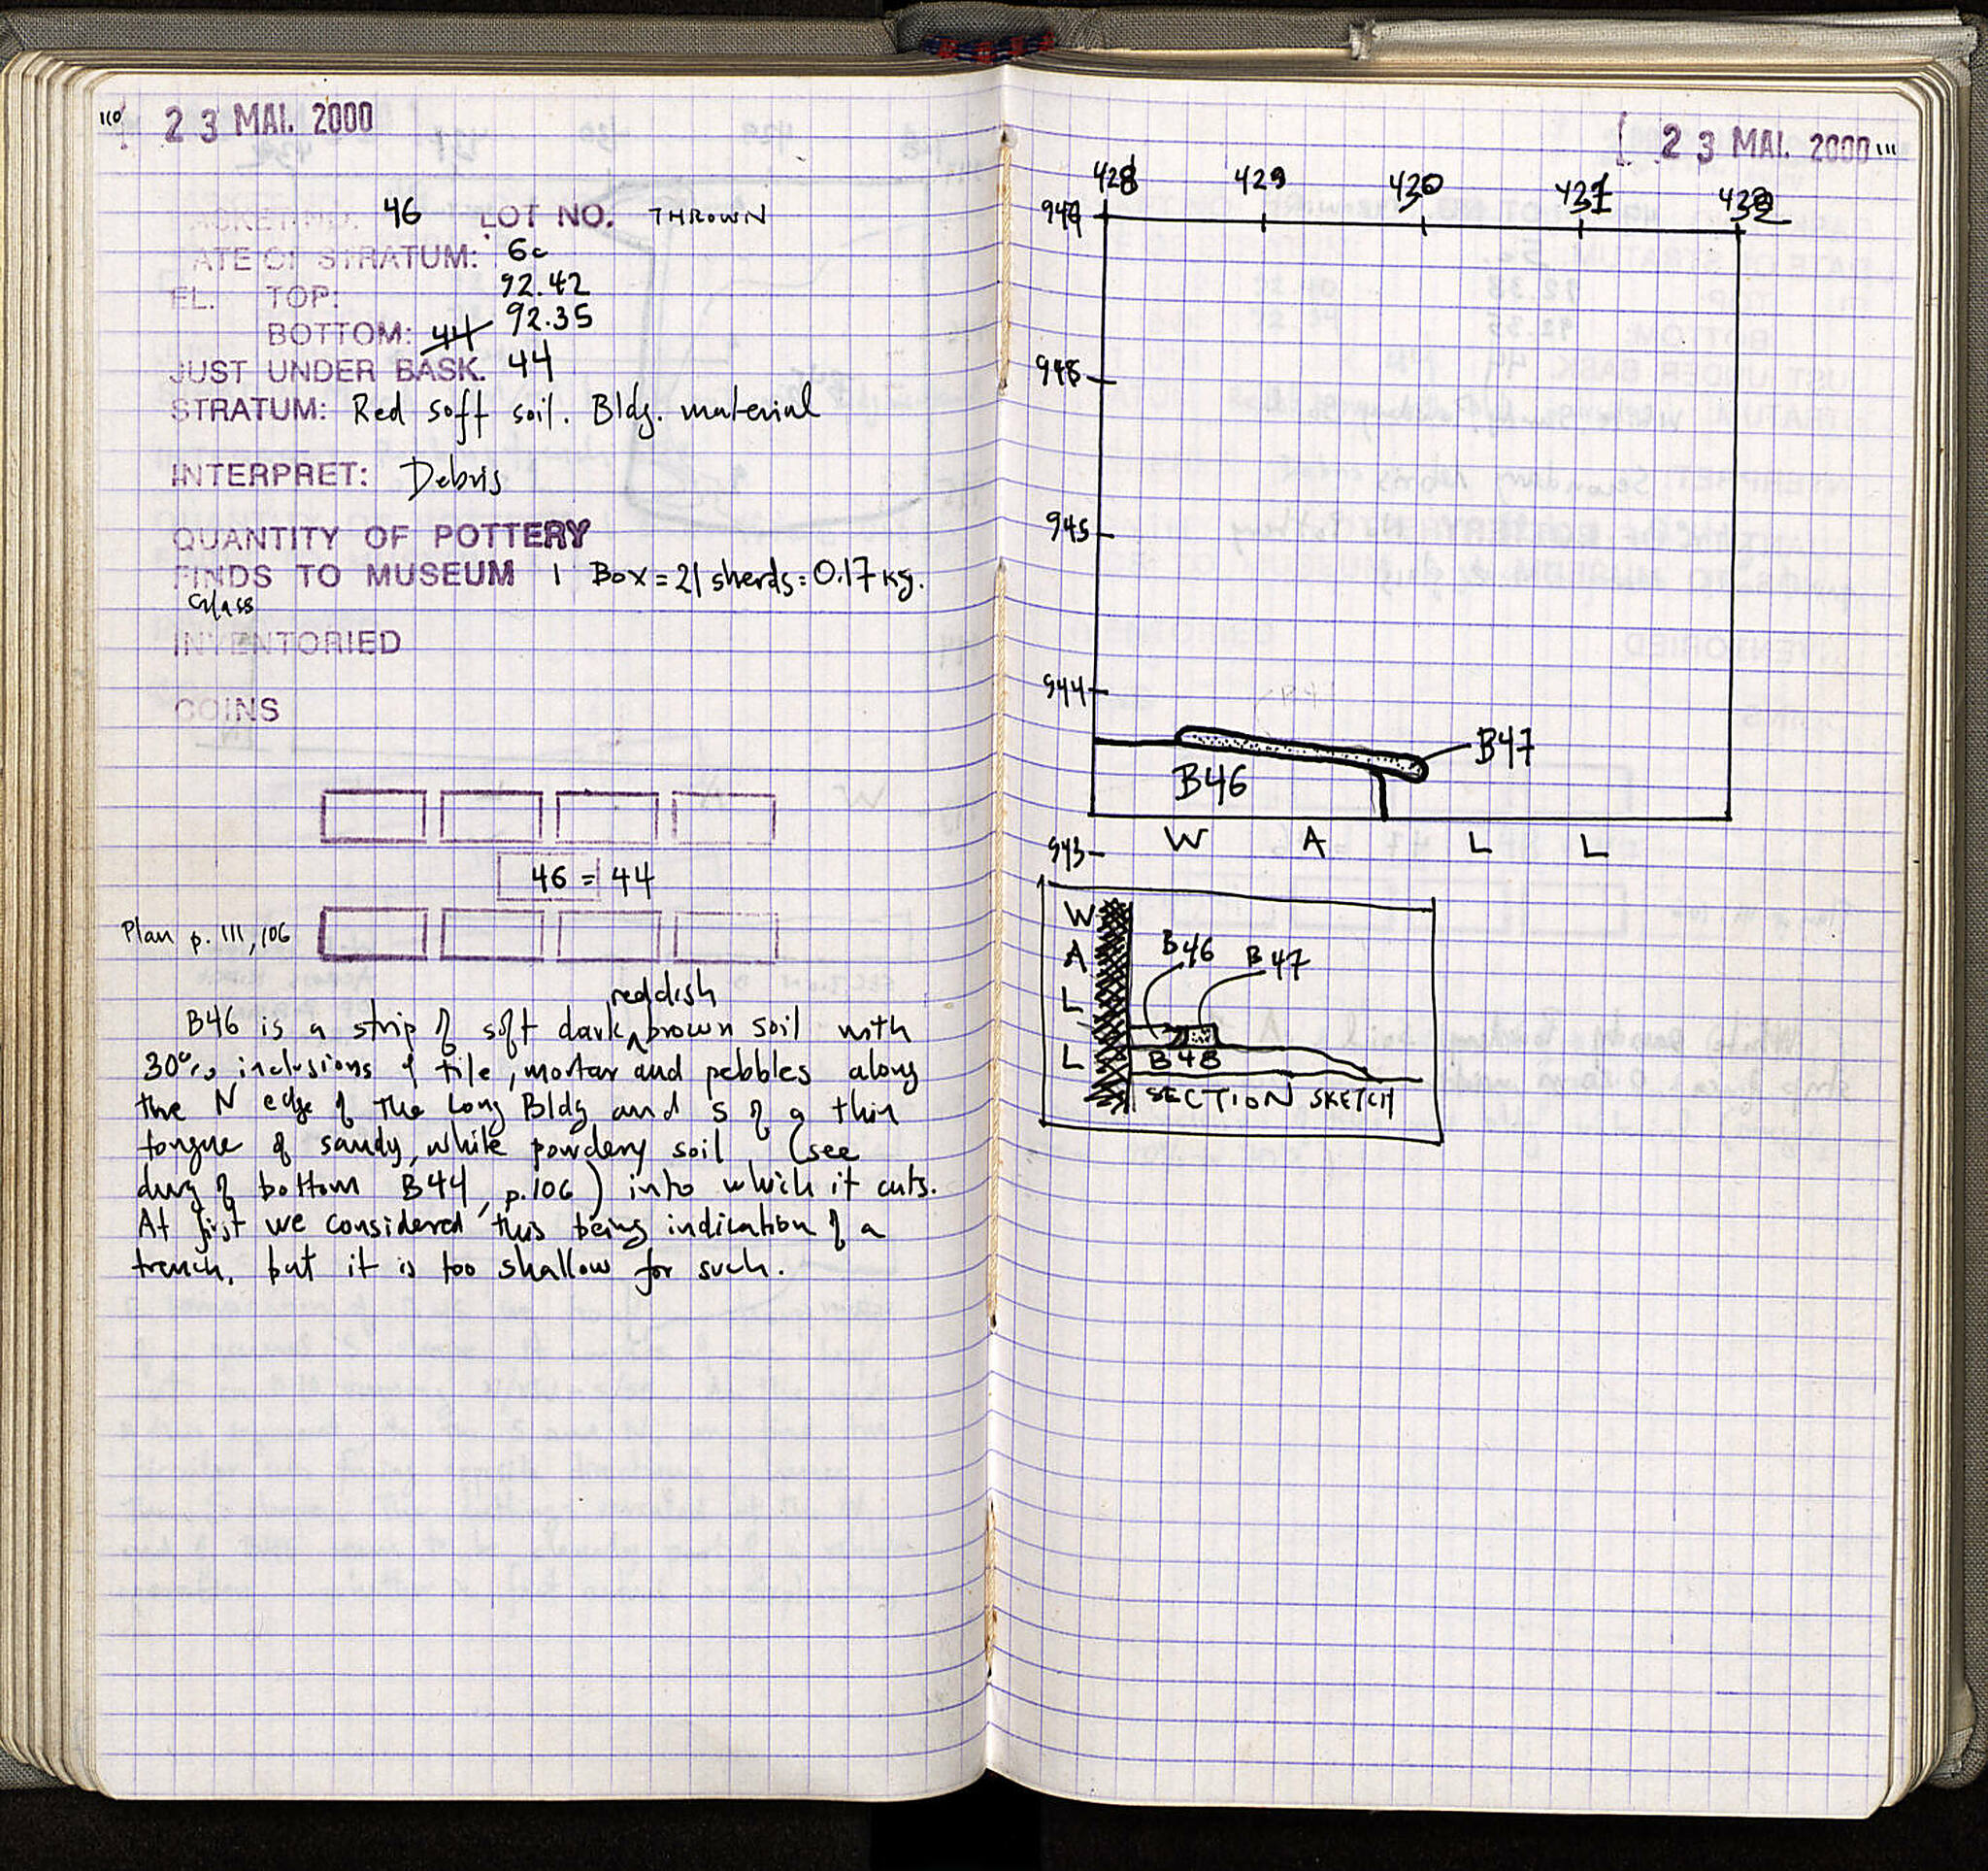 110
23 MAI. 2000
BASKET NO. 46 LOT NO. THROWN
DATE OF STRATUM: 6c
EL. TOP: 92.42
BOTTOM: 44 92.35
JUST UNDER BASK. 44
STRATUM: Red soft soil. Bldg. material
INTERPRET: Debris
QUANTITY OF POTTERY
FINDS TO MUSEUM 1 Box = 21 sherds = 0.17 kg.
Glass
INVENTORIED
COINS
46 = 44
Plan p. 111, 106
reddish
B46 is a strip of soft dark ^ brown soil with
30% inclusions of tile, mortar and pebbles along
the N edge of the Long Bldg and S of a thin
tongue of sandy, white powdery soil (see
dwg of bottom B44, p.106) into which it cuts.
At first we considered this being indication of a
trench, but it is too shallow for such.
23 MAI. 2000 111
428 429 430 431 432
945
944
B47
B46
943
W A L L
W
A
L
L
B46 B47
B48
SECTION SKETCH